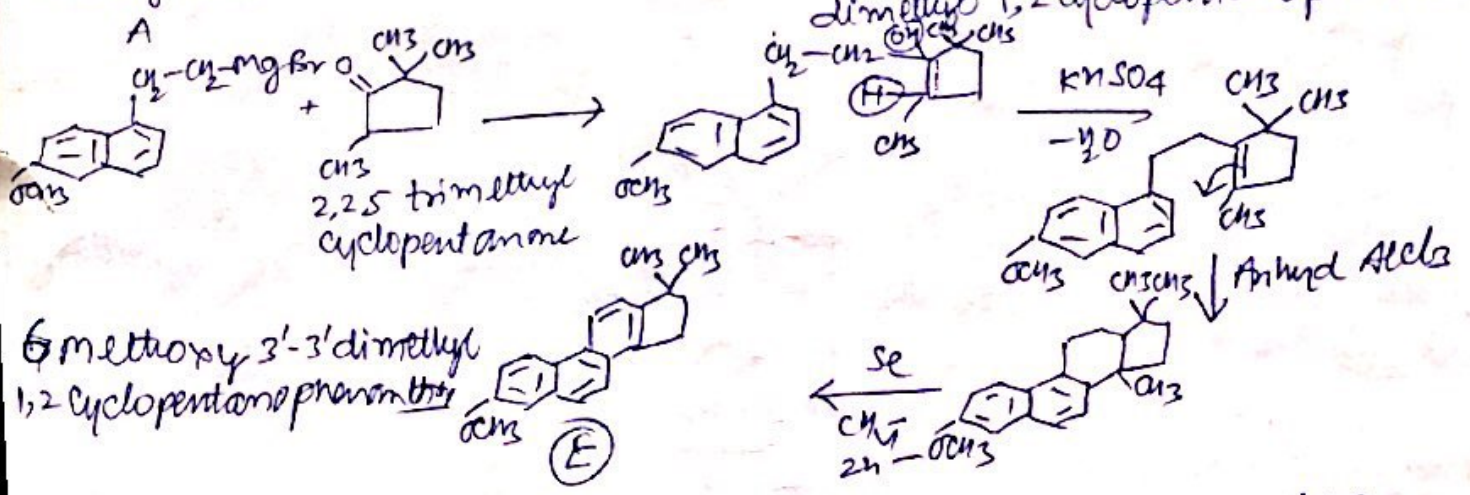 dimethyl 1,2 cyclopent
A
CH2-CH2-MgBr
+
O
CH3
CH3
CH3
OCH3
2,2,5 trimethyl
cyclopentanone
CH2-CH2
OH
CH3
CH3
H
CH3
OCH3
KHSO4
-H2O
CH3
CH3
CH3
OCH3
Anhyd AlCl3
CH3 CH3
CH3
OCH3
Se
CH3
CH3
OCH3
E
6 methoxy 3'-3' dimethyl
1,2 Cyclopentano